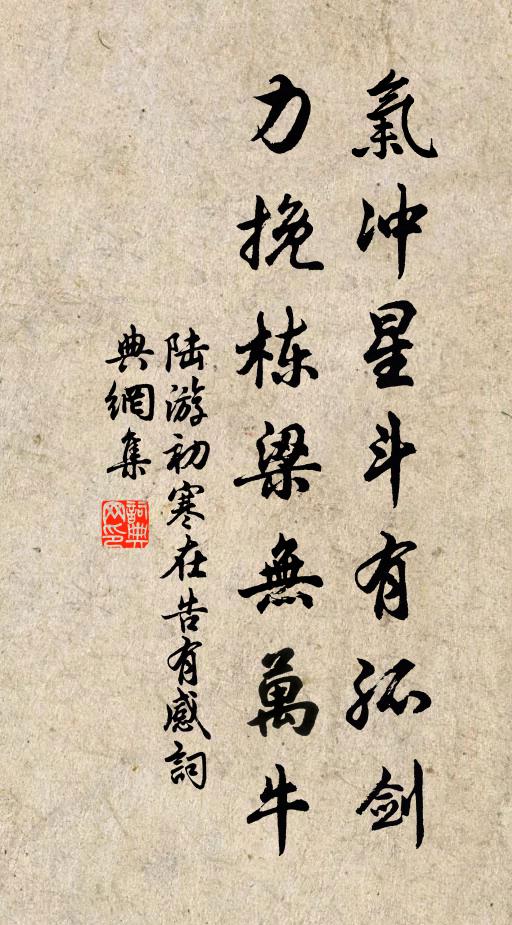 氣冲星斗有孤剑
力挽栋梁無萬牛
陆游初寒在告有感詞
典網集
詞典
网印